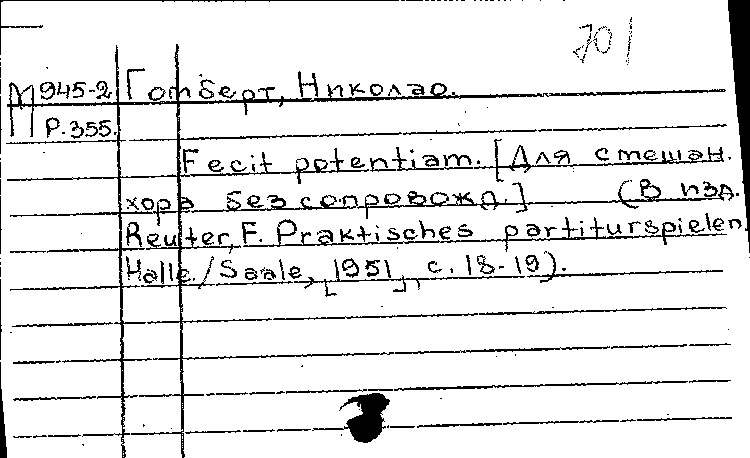 701
М 945-2 Гомберт, Николао.
Р.355.
Fecit potentiam. [Для смешан.
хора без сопровожд.] (В изд.
Reuter, F. Praktisches partiturspielen
Halle/Saale, [1951], с. 18-19).